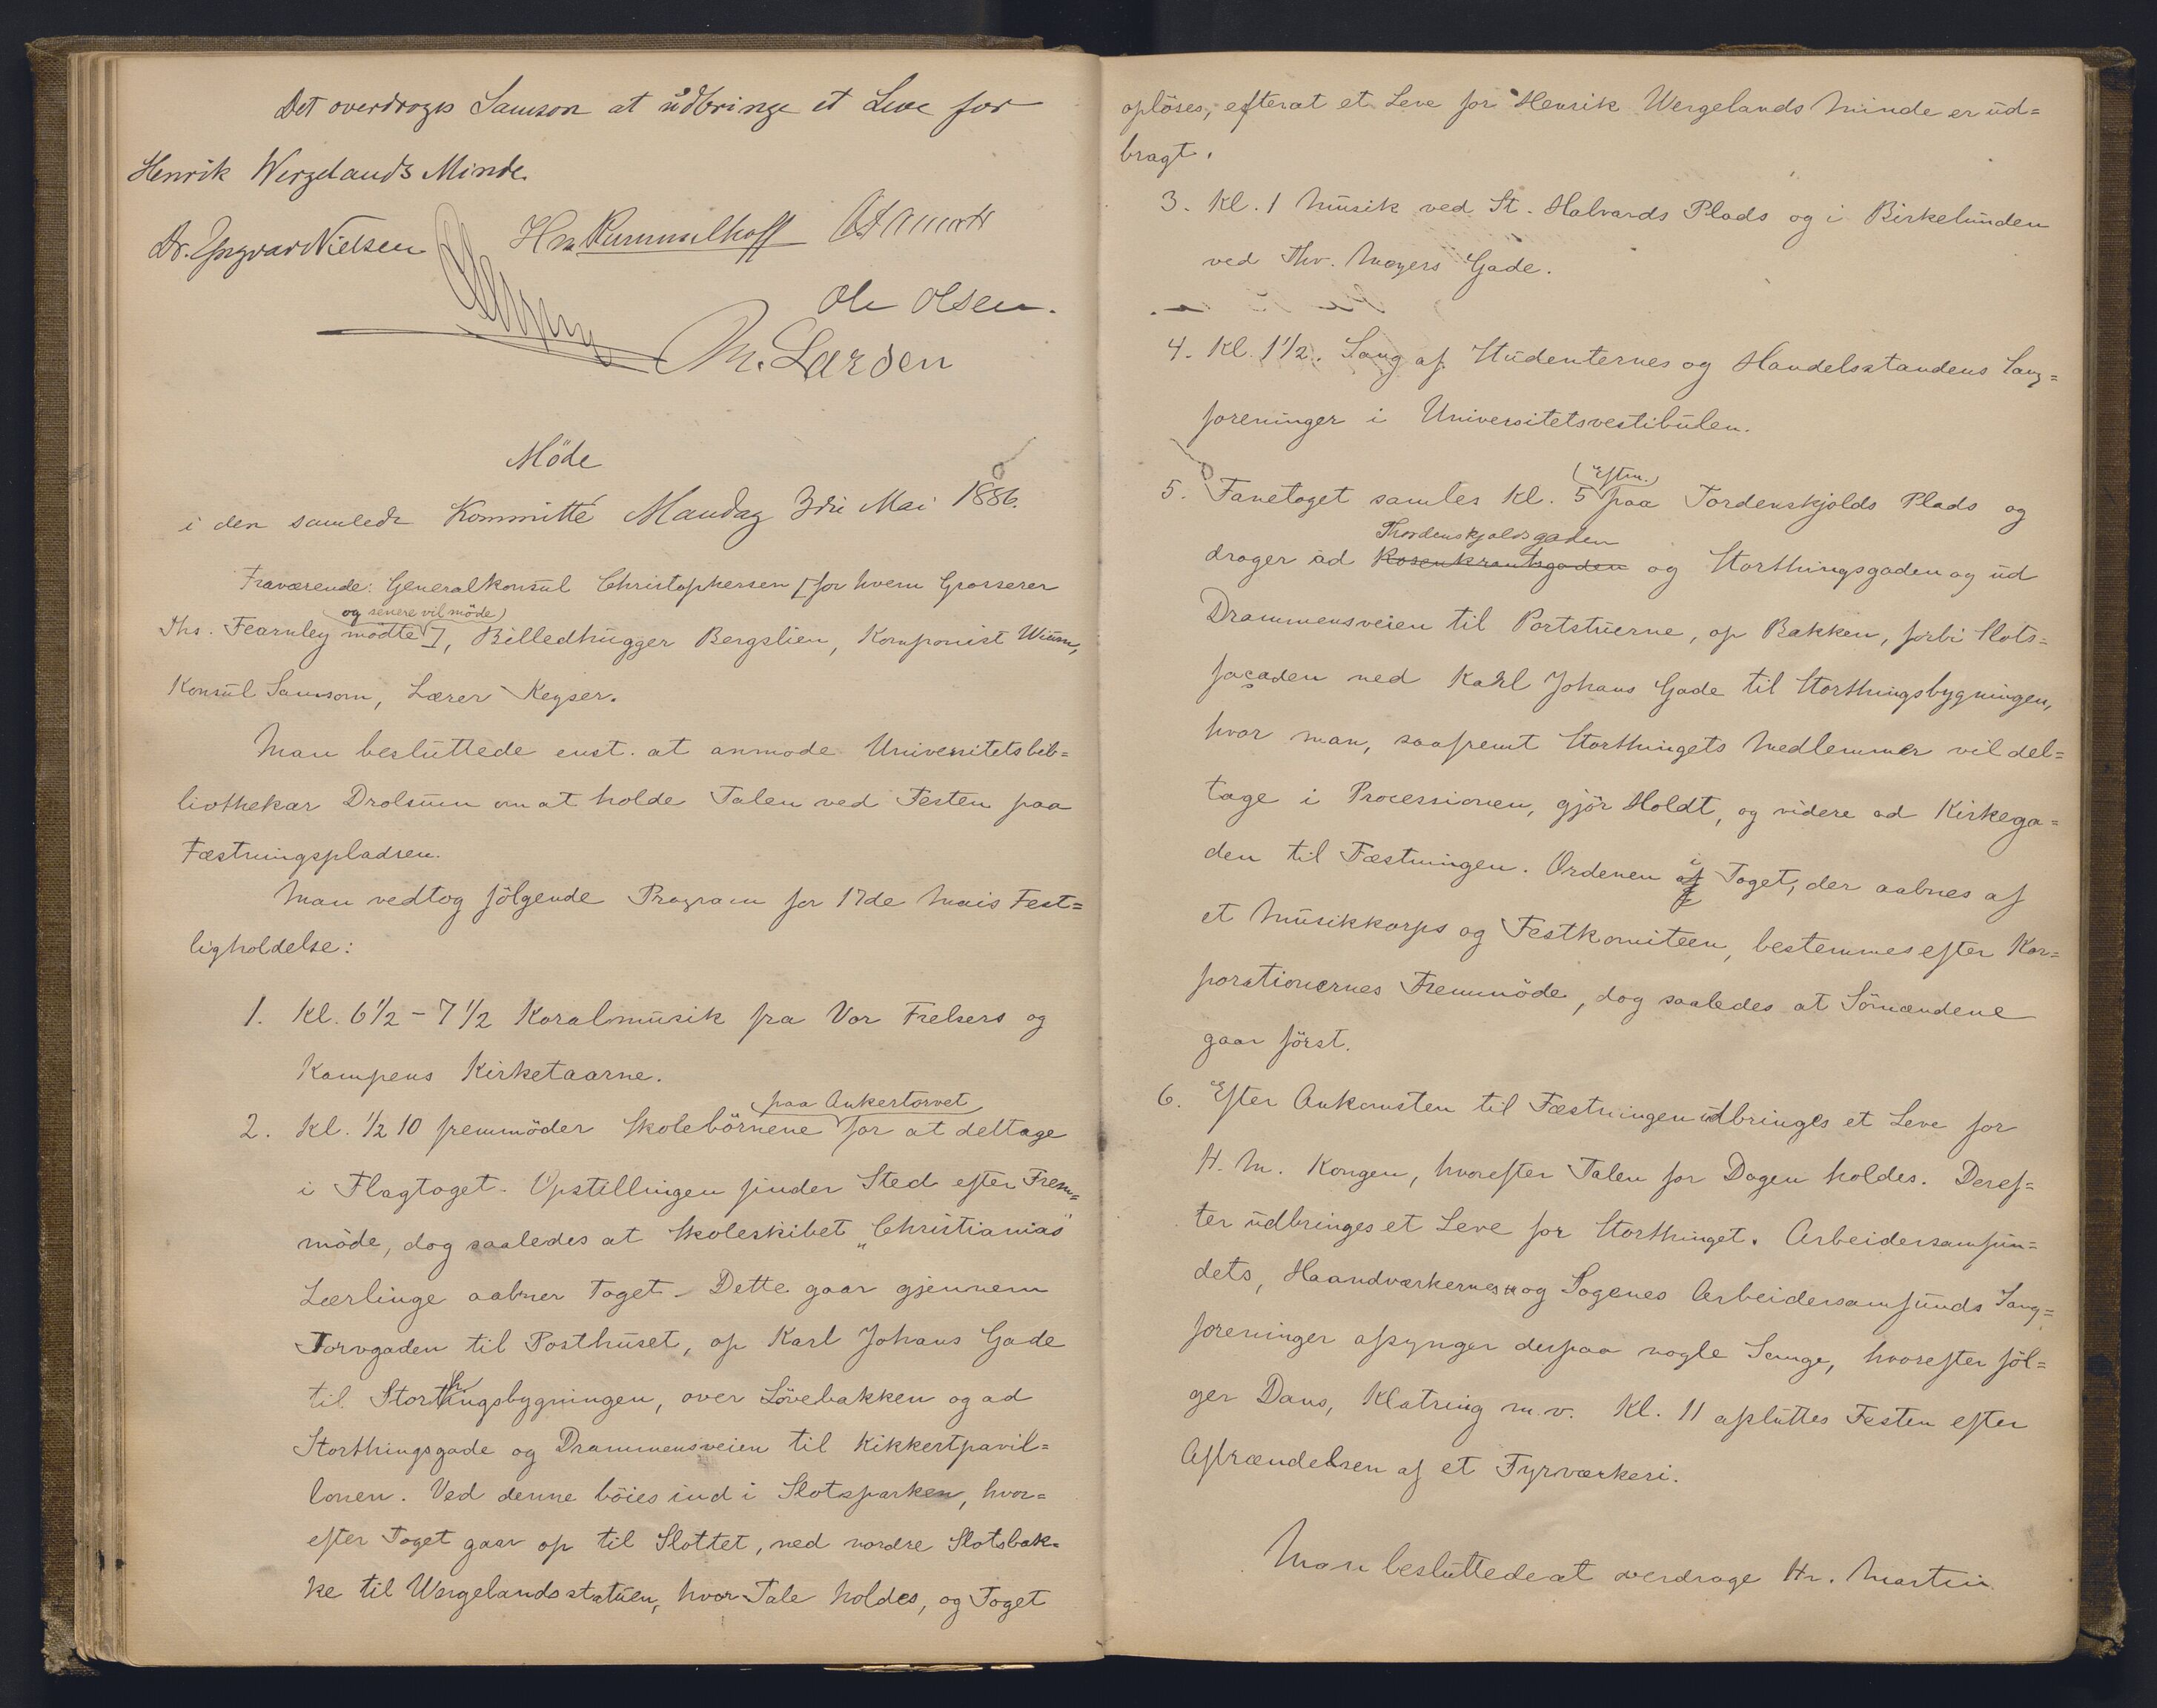 Det overdroges Samson at udbringe et Leve for
Henrik Wergelands Minde.
Dr. Yngvar Nielsen
Hm Rummelhoff
Ole Olsen.
M. Larsen
Möde
i den samlede Kommitté Mandag 3die Mai 1886.
Fraværende: Generalkonsul Christophersen [for hvem Grosserer
Ths. Fearnley mödte (og senere vil möde)], Billedhugger Bergslien, Komponist Winn,
Konsul Samson, Lærer Keyser.
Man besluttede enst. at anmode Universitetsbib=
liothekar Drolsum om at holde Talen ved Festen paa
Fæstningspladsen.
Man vedtog fölgende Program for 17de Mais Fest=
ligholdelse:
1. Kl. 6 1/2 - 7 1/2 Koralmusik fra Vor Frelsers og
Kampens Kirketaarne.
2. Kl. 1/2 10 fremmöder Skolebörnene paa Ankertorvet for at deltage
i Flagtoget. Opstillingen finder Sted efter Frem=
möde, dog saaledes at Skoleskibet "Christianias"
Lærlinge aabner Toget. Dette gaar gjennem
Torvgaden til Posthuset, op Karl Johans Gade
til Storthingsbygningen, over Lövebakken og ad
Storthingsgade og Drammensveien til Kikkertpavil=
lonen. Ved denne böies ind i Slotsparken, hvor=
efter Toget gaar op til Slottet, ned nordre Slotsbak=
ke til Wergelandsstatuen, hvor Tale holdes, og Toget
oplöses, efterat et Leve for Henrik Wergelands Minde er ud=
bragt.
3. Kl. 1 Musik ved St. Halvards Plads og i Birkelunden
ved Thv. Meyers Gade.
4. Kl. 1 1/2. Sang af Studenternes og Handelsstandens Sang=
foreninger i Universitetsvestibulen.
5. Fanetoget samles Kl. 5 (Eftm.) paa Tordenskjolds Plads og
drager ad Rosenkrantsgaden Thordenskjoldsgaden og Storthingsgaden og ud
Drammensveien til Portstuerne, op Bakken, forbi Slots=
façaden ned Karl Johans Gade til Storthingsbygningen,
hvor man, saafremt Storthingets Medlemmer vil del=
tage i Processionen, gjör Holdt, og videre ad Kirkega=
den til Fæstningen. Ordenen af i Toget, der aabnes af
et Musikkorps og Festkomiteen, bestemmes efter Kor=
porationernes Fremmöde, dog saaledes at Sömændene
gaar först.
6. Efter Ankomsten til Fæstningen udbringes et Leve for
H. M. Kongen, hvorefter Talen for Dagen holdes. Deref=
ter udbringes et Leve for Storthinget. Arbeidersamfun=
dets, Haandværkernes og Sogenes Arbeidersamfunds Sang=
foreninger afsynger derpaa nogle Sange, hvorefter föl=
ger Dans, Klatring m. v. Kl. 11 afsluttes Festen efter
Afbrændelsen af et Fyrværkeri.
Man besluttede at overdrage Hr. Martin